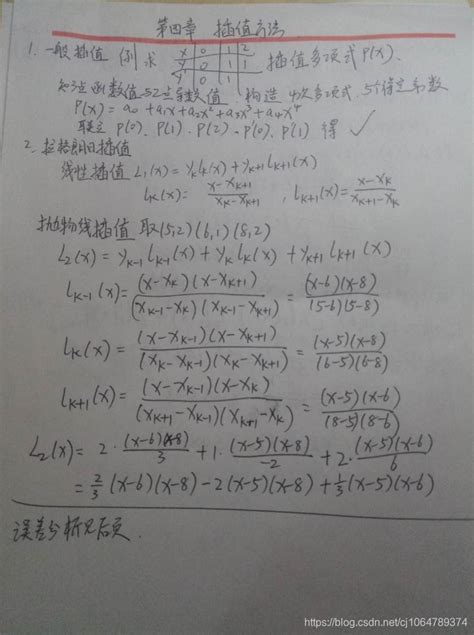 第四章 插值方法
1. 一般插值 例 求 X 0 1 2 插值多项式P(x).
Y 0 1 1
Y' 0 1
知3个函数值与2个导数值,构造4次多项式,5个待定系数
P(x) = a0 + a1x + a2x² + a3x³ + a4x⁴
联立 P(0)、P(1)、P(2)、P'(0)、P'(1) 得 ✓
2. 拉格朗日插值
线性插值 L1(x) = yk lk(x) + yk+1 lk+1(x)
lk(x) = (x-xk+1)/(xk-xk+1) , lk+1(x) = (x-xk)/(xk+1-xk)
抛物线插值 取(5,2)(6,1)(8,2)
L2(x) = yk-1 lk-1(x) + yk lk(x) + yk+1 lk+1(x)
lk-1(x) = (x-xk)(x-xk+1)/(xk-1-xk)(xk-1-xk+1) = (x-6)(x-8)/(5-6)(5-8)
lk(x) = (x-xk-1)(x-xk+1)/(xk-xk-1)(xk-xk+1) = (x-5)(x-8)/(6-5)(6-8)
lk+1(x) = (x-xk-1)(x-xk)/(xk+1-xk-1)(xk+1-xk) = (x-5)(x-6)/(8-5)(8-6)
L2(x) = 2·(x-6)(x-8)/3 + 1·(x-5)(x-8)/-2 + 2·(x-5)(x-6)/6
= 2/3(x-6)(x-8) - 2(x-5)(x-8) + 1/3(x-5)(x-6)
误差分析见后页.
https://blog.csdn.net/cj1064789374